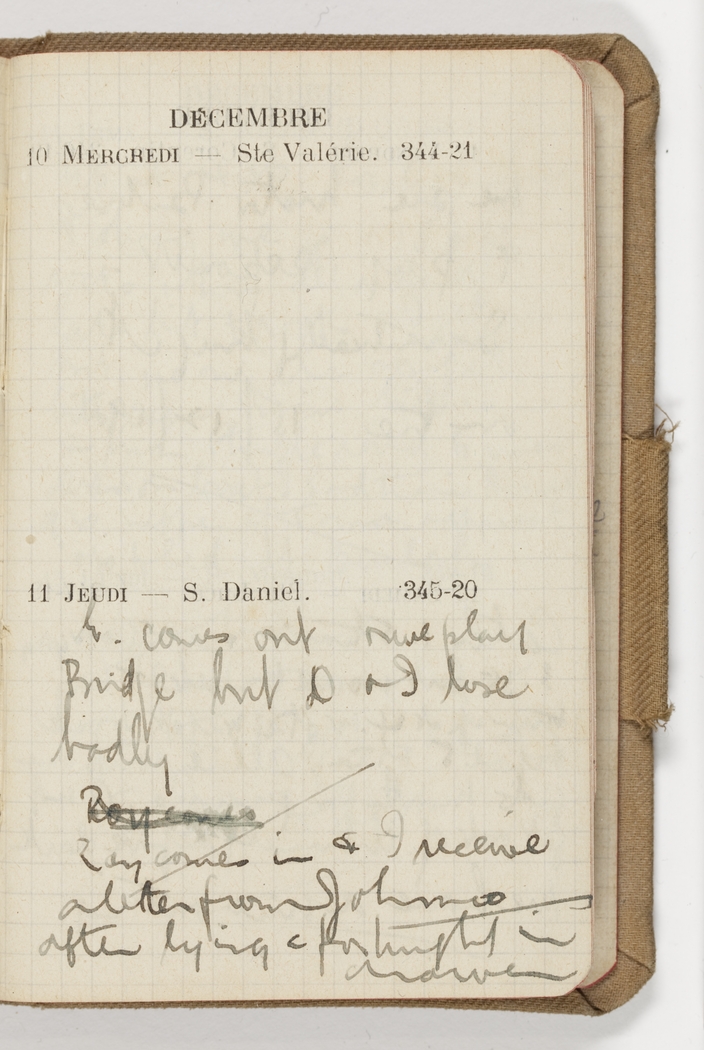 DÉCEMBRE
10 MERCREDI — Ste Valérie. 344-21
11 JEUDI — S. Daniel. 345-20
comes out we play
Bridge but D & I lose
badly
Roy comes
Roy comes in & I receive
a letter from Johnnoo
after lying a fortnight in
a drawer